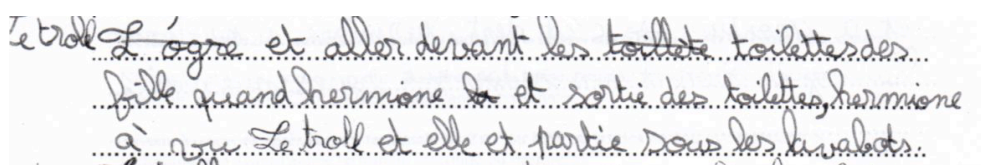 Le troll L'ogre et aller devant les toillete toilettes des
fille quand hermione et sortie des toilettes, hermione
à vu Le troll et elle et partie sous les lavabots.